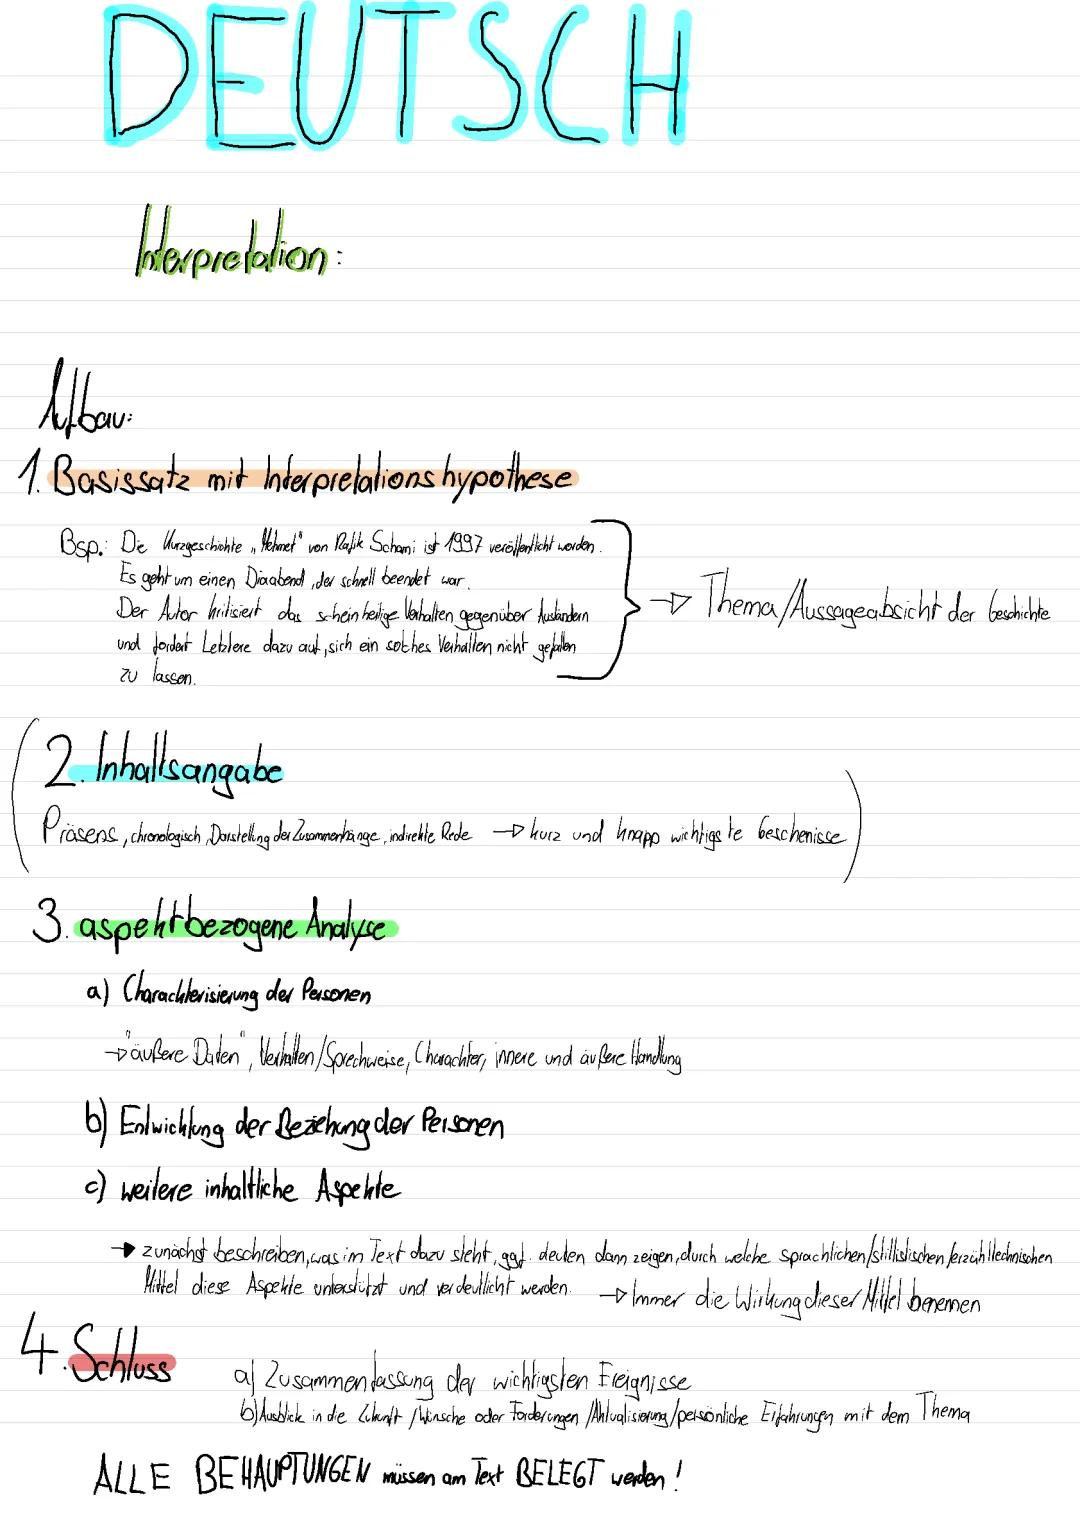 DEUTSCH
Interpretation:
Aufbau:
1. Basissatz mit Interpretationshypothese
Bsp.: Die Kurzgeschichte „Mehmet" von Rafik Schami ist 1997 veröffentlicht worden.
Es geht um einen Diaabend, der schnell beendet war.
Der Autor kritisiert das scheinheilige Verhalten gegenüber Ausländern
und fordert Letztere dazu auf, sich ein solches Verhalten nicht gefallen
zu lassen.
→ Thema/Aussageabsicht der Geschichte
(2. Inhaltsangabe
Präsens, chronologisch, Darstellung der Zusammenhänge, indirekte Rede → kurz und knapp wichtigste Geschenisse)
3. aspektbezogene Analyse
a) Charackterisierung der Personen
→ "äußere Daten", Verhalten/Sprechweise, Charackter, innere und äußere Handlung
b) Entwicklung der Beziehung der Personen
c) weitere inhaltliche Aspekte
→ zunächst beschreiben, was im Text dazu steht, ggf. deuten dann zeigen, durch welche sprachlichen/stillistischen/erzähltechnischen
Mittel diese Aspekte unterstützt und verdeutlicht werden. → Immer die Wirkung dieser Mittel benennen
4. Schluss
a) Zusammenfassung der wichtigsten Ereignisse
b) Ausblick in die Zukunft/Wünsche oder Forderungen/Aktualisierung/persönliche Erfahrungen mit dem Thema
ALLE BEHAUPTUNGEN müssen am Text BELEGT werden!